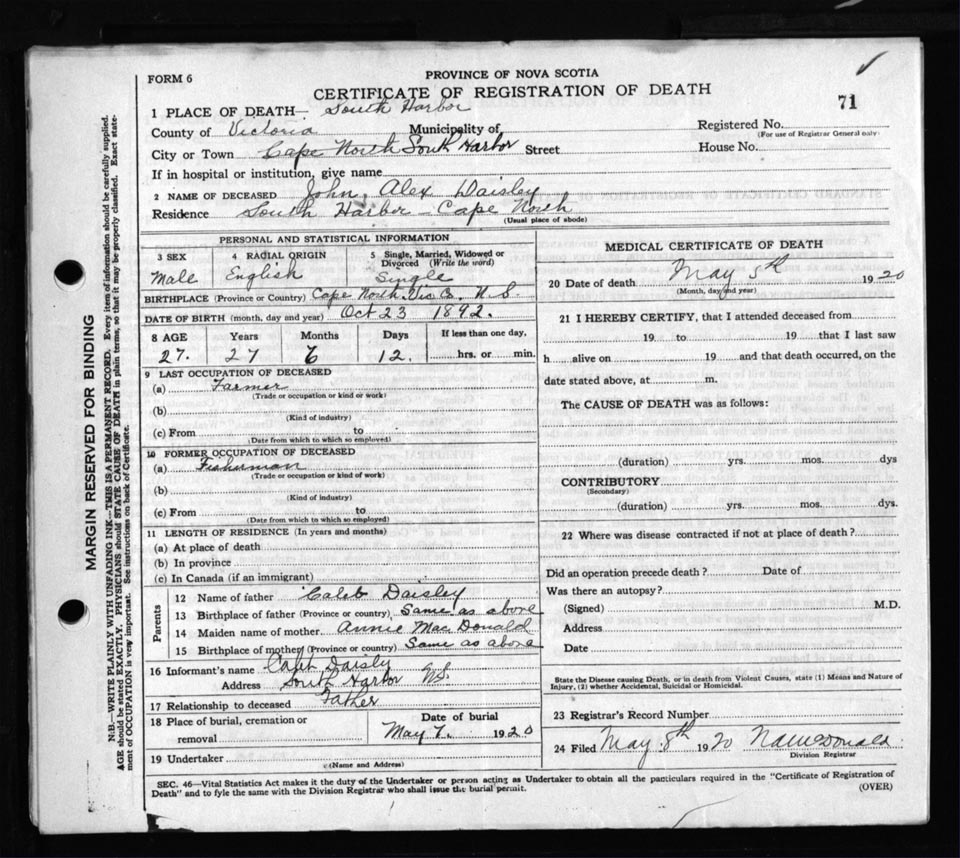 FORM 6
PROVINCE OF NOVA SCOTIA
CERTIFICATE OF REGISTRATION OF DEATH
71
1 PLACE OF DEATH— South Harbor
County of Victoria Municipality of
Registered No.
(For use of Registrar General only)
City or Town Cape North South Harbor Street
House No.
If in hospital or institution, give name
2 NAME OF DECEASED John Alex Daisley
Residence South Harbor - Cape North
(Usual place of abode)
PERSONAL AND STATISTICAL INFORMATION
3 SEX 4 RADIAL ORIGIN 5 Single, Married, Widowed or Divorced (Write the word)
Male English Single
BIRTHPLACE (Province or Country) Cape North Vic Co. N.S.
DATE OF BIRTH (month, day and year) Oct 23 1892.
8 AGE Years Months Days If less than one day,
27. 27 6 12. hrs. or min.
9 LAST OCCUPATION OF DECEASED
(a) Farmer
(Trade or occupation or kind or work)
(b)
(Kind of industry)
(c) From to
(Date from which to which so employed)
10 FORMER OCCUPATION OF DECEASED
(a) Fisherman
(Trade or occupation or kind of work)
(b)
(Kind of industry)
(c) From to
(Date from which to which so employed)
11 LENGTH OF RESIDENCE (In years and months)
(a) At place of death
(b) In province
(c) In Canada (if an immigrant)
Parents
12 Name of father Caleb Daisley
13 Birthplace of father (Province or country) Same as above
14 Maiden name of mother Annie Mac Donald
15 Birthplace of mother (Province or country) Same as above
16 Informant's name Caleb Daisly
Address South Harbor N.S.
17 Relationship to deceased Father
18 Place of burial, cremation or removal
Date of burial
May 7. 1920
19 Undertaker
(Name and Address)
MEDICAL CERTIFICATE OF DEATH
20 Date of death May 5th 1920
(Month, day and year)
21 I HEREBY CERTIFY, that I attended deceased from
19 to 19 that I last saw
h alive on 19 and that death occurred, on the
date stated above, at m.
The CAUSE OF DEATH was as follows:
(duration) yrs. mos. dys
CONTRIBUTORY
(Secondary)
(duration) yrs. mos. dys.
22 Where was disease contracted if not at place of death?
Did an operation precede death? Date of
Was there an autopsy?
(Signed) M.D.
Address
Date
State the Disease causing Death, or in death from Violent Causes, state (1) Means and Nature of
Injury, (2) whether Accidental, Suicidal or Homicidal.
23 Registrar's Record Number
24 Filed May 8th 1920
Division Registrar
SEC. 46—Vital Statistics Act makes it the duty of the Undertaker or person acting as Undertaker to obtain all the particulars required in the "Certificate of Registration of
Death" and to fyle the same with the Division Registrar who shall issue the burial permit.
(OVER)
MARGIN RESERVED FOR BINDING
N.B.—WRITE PLAINLY WITH UNFADING INK—THIS IS A PERMANENT RECORD. Every item of information should be carefully supplied.
AGE should be stated EXACTLY. PHYSICIANS should STATE CAUSE OF DEATH in plain terms, so that it may be properly classified. Exact state-
ment of OCCUPATION is very important. See instructions on back of Certificate.